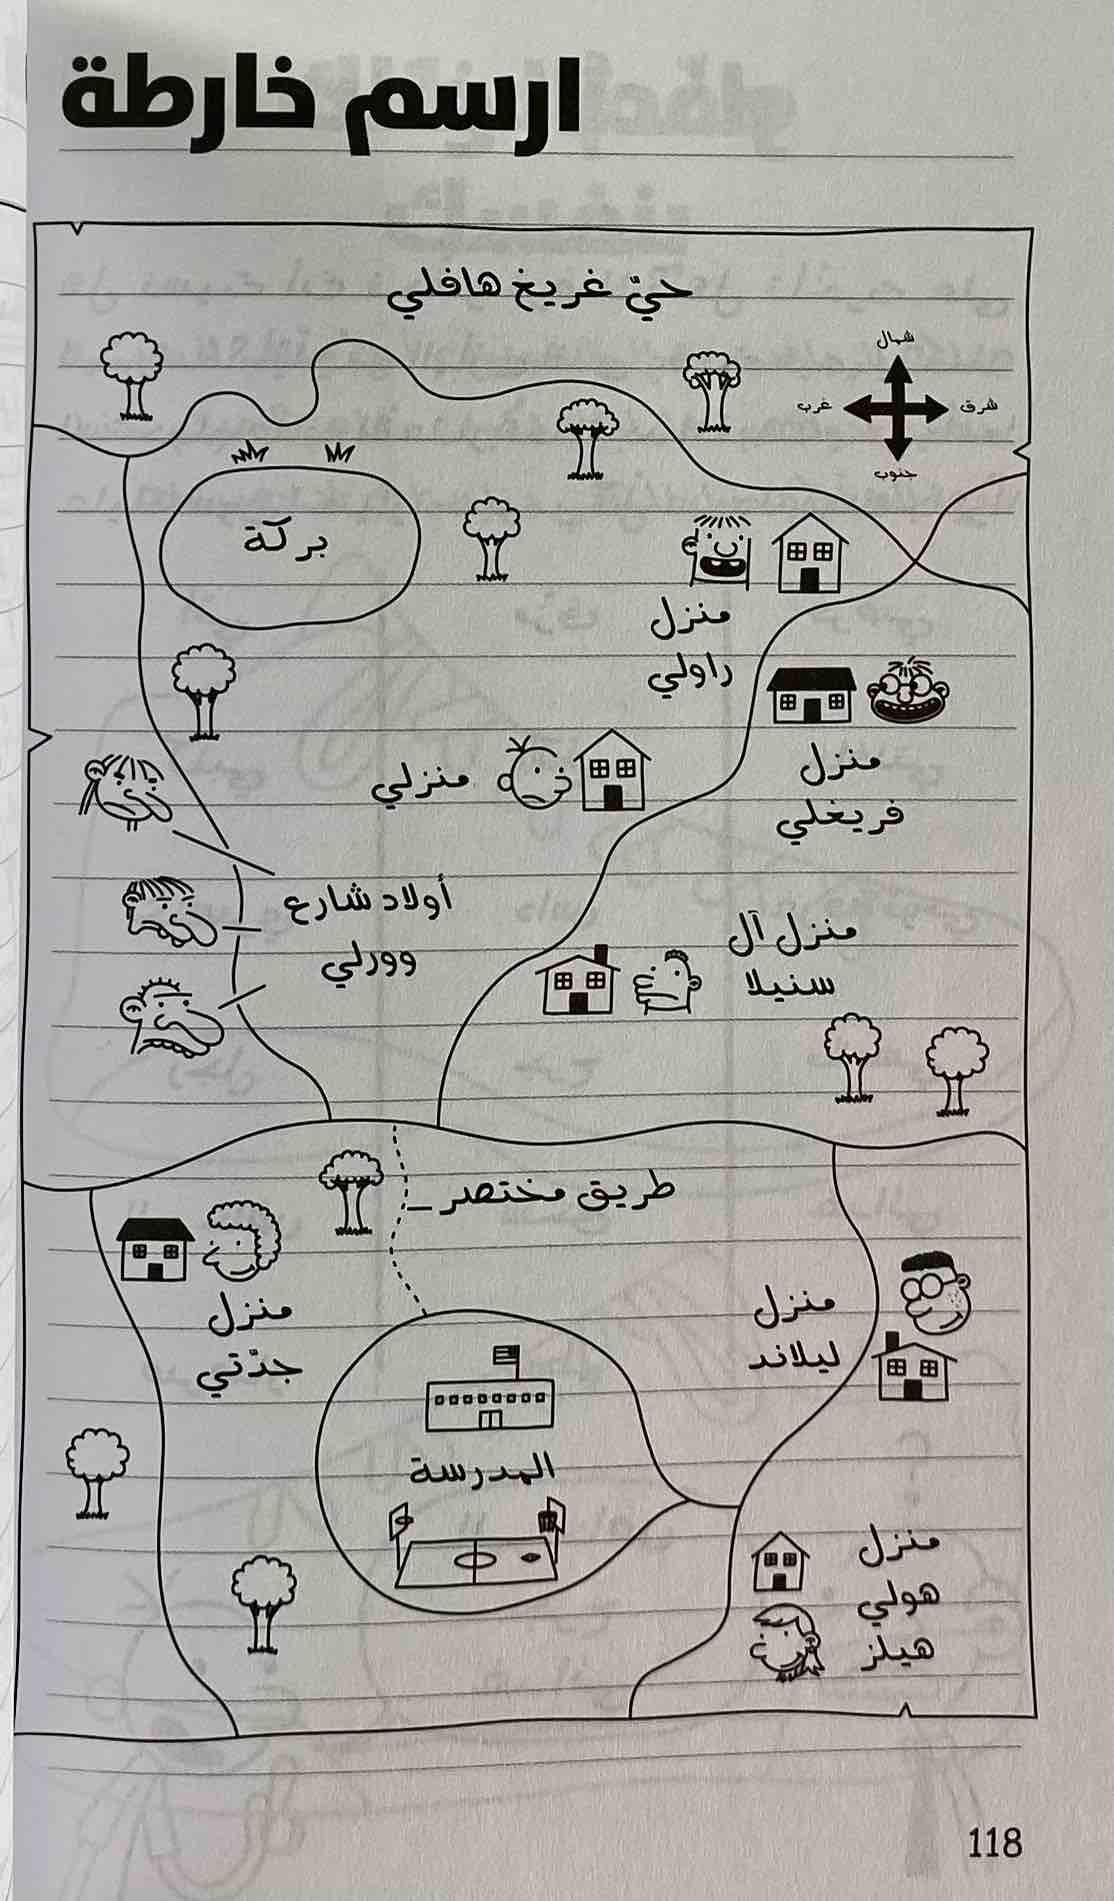 ارسم خارطة
حيّ غريغ هافلي
شمال
غرب
شرق
جنوب
بركة
منزل
راولي
منزل
فريغلي
منزلي
أولاد شارع
وورلي
منزل آل
سنيلا
طريق مختصر
منزل
جدّتي
منزل
ليلاند
المدرسة
منزل
هولي
هيلز
118